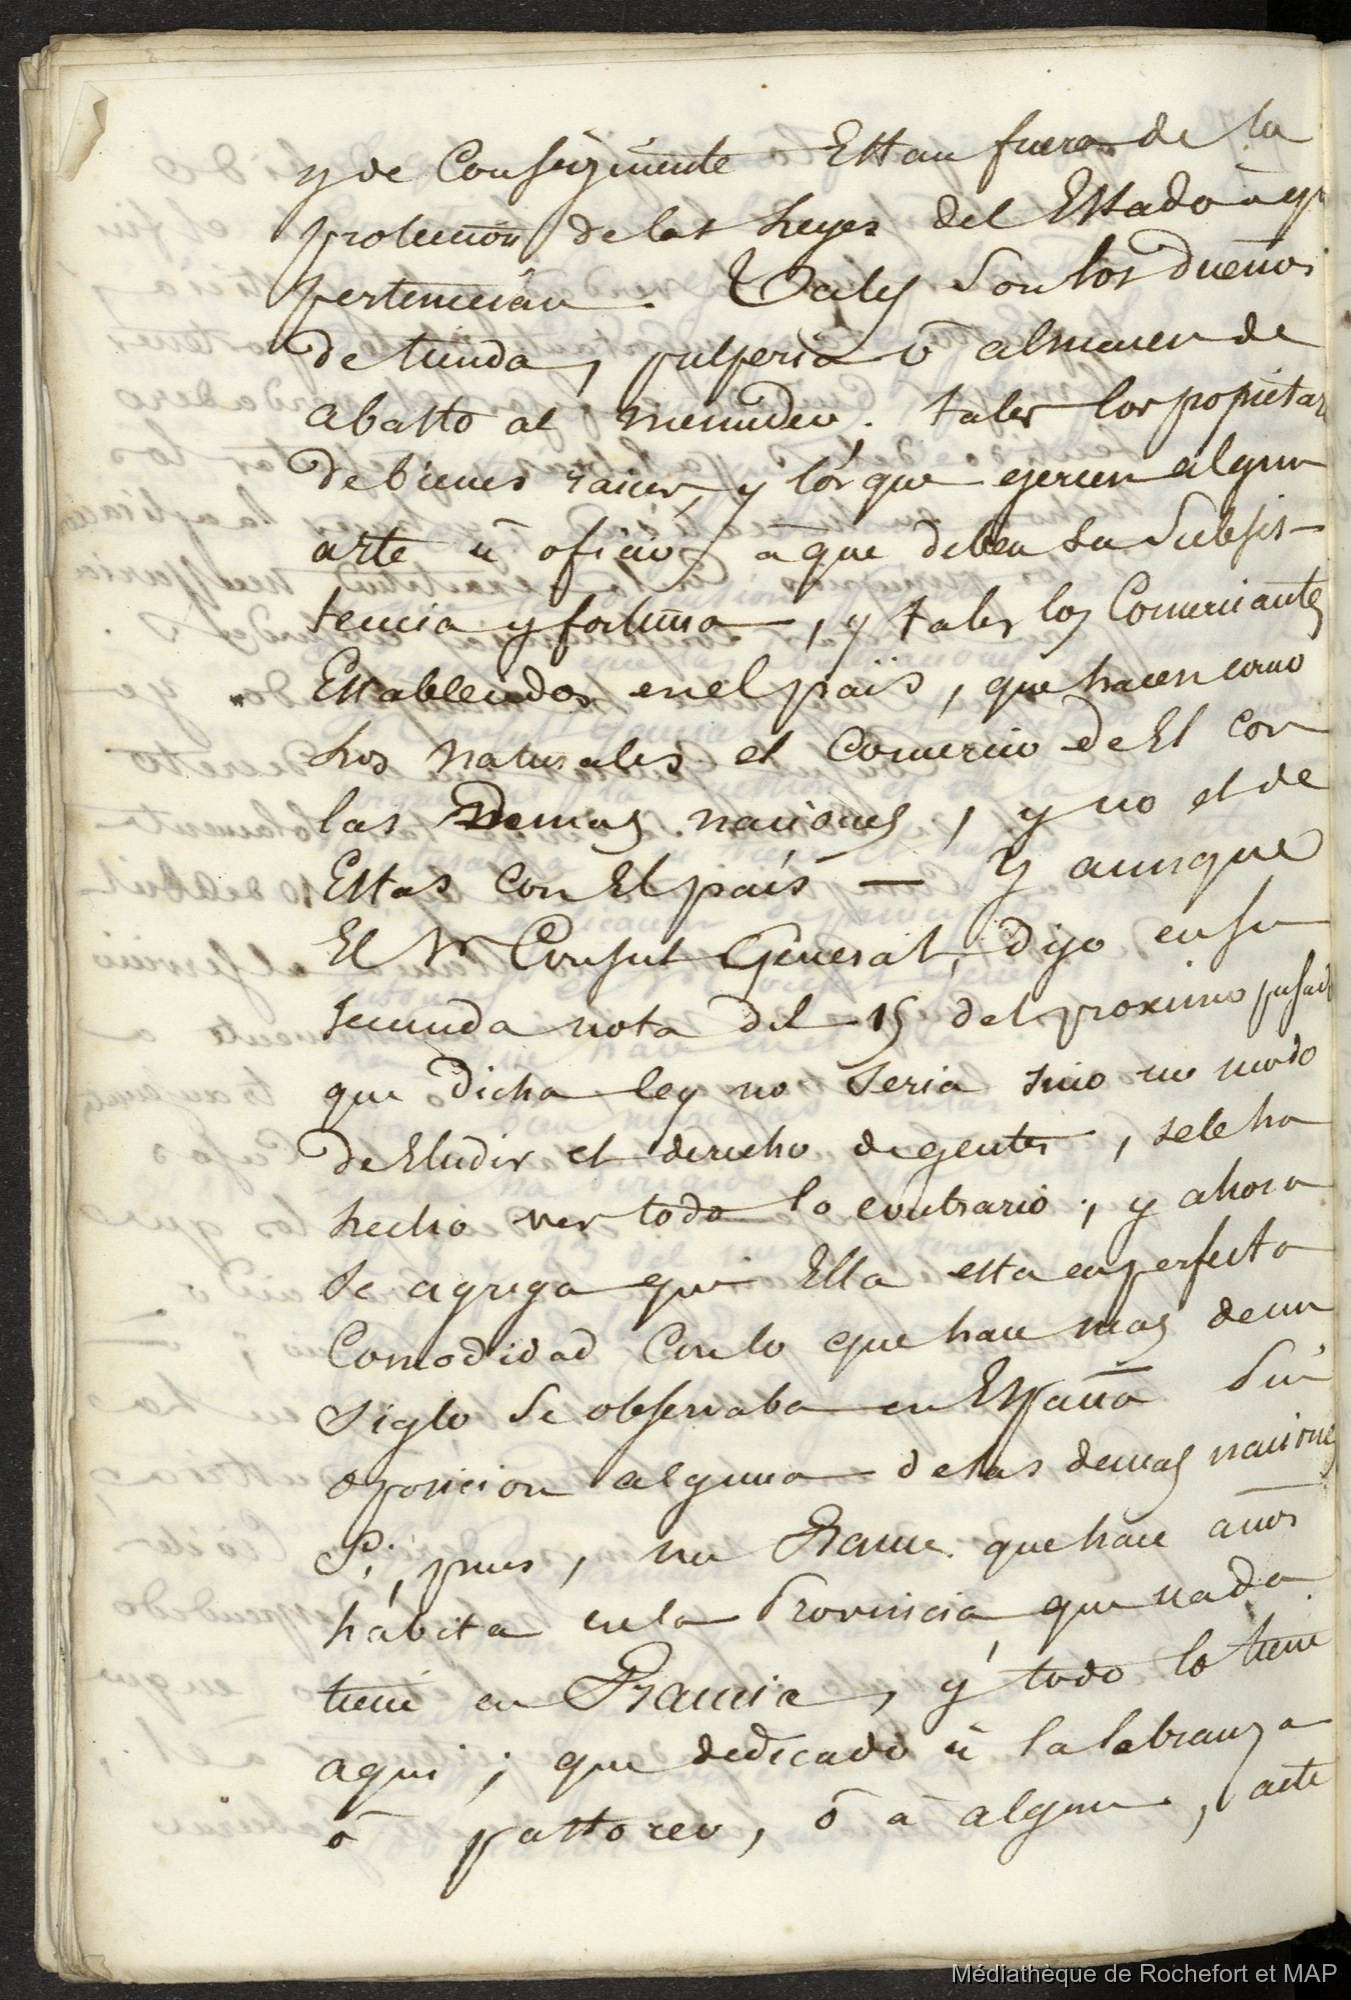 y de Consiguiente Estan fuera de la
proteccion de las Leyes del Estado à q.e
pertenecian. Tales son los dueños
de tienda, pulperia ò almacen de
abasto al menudeo. tales los propietar
de bienes raices, y los que egercen algun
arte ù oficio, à que deben su Subsis-
tencia y fortuna, y tales los Comerciantes
Establecidos en el pais, que hacen como
Los naturales el Comercio de El con
las Demas naciones, y no el de
Estas con El pais — Y aunque
El Sr Consul General, dijo en su
secunda nota del 15 del proximo pasado
que Dicha ley no seria sino un modo
de Eludir el derecho de gentes, se le ha
hecho ver todo lo contrario; y ahora
se agrega que Ella esta en perfecta
Comodidad Con lo que hace mas de un
Siglo se observaba en España sin
oposicion alguna de las demas naciones
Si, pues, un Frances que hace años
habita en la Provincia, que nada
tiene en Francia, y todo lo tiene
aqui; que dedicado à la labranza
ò pastoreo, ò à algun, arte
Médiathèque de Rochefort et MAP